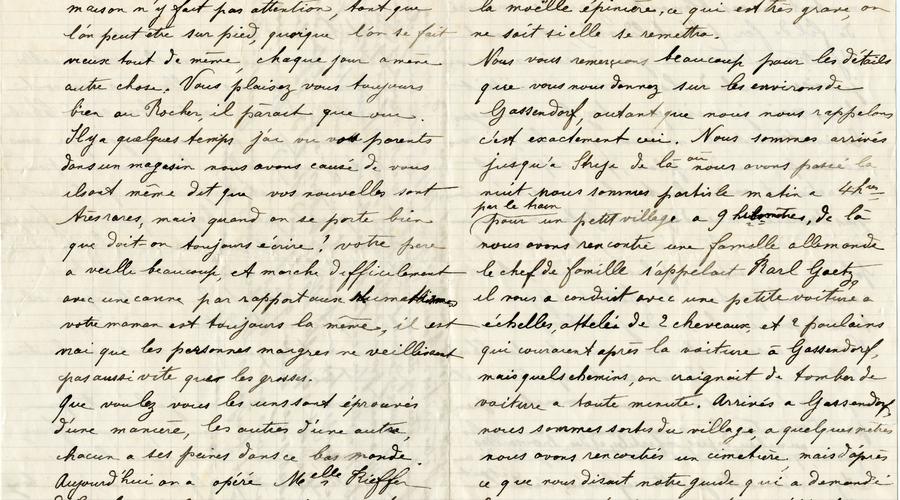 maison n'y fait pas attention, tant que
l'on peut etre sur pied, quoique l'on se fait
vieux tout de même, chaque jour amène
autre chose. Vous plaisez vous toujours
bien au Rocher, il parait que oui.
Il y a quelques temps j'ai vu vos parents
dans un magasin nous avons causé de vous
ils ont même dit que vos nouvelles sont
tres rares, mais quand on se porte bien
que doit-on toujours écrire! votre pere
a veilli beaucoup, et marche difficilement
avec une canne par rapport aux rhumathismes
votre maman est toujours la même, il est
vrai que les personnes maigres ne veillissent
pas aussi vite que les grosses.
Que voulez vous les uns sont éprouvés
d'une manière, les autres d'une autre,
chacun a ses peines dans ce bas monde.
Aujourd'hui on a opéré Melle Kieffer
la moëlle épiniere, ce qui est très grave, on
ne sait si elle se remettra.
Nous vous remerçions beaucoup pour les détails
que vous nous donnez sur les environs de
Gassendorf, autant que nous nous rappelons
c'est exactement ceci. Nous sommes arrivés
jusqu'a Stryje de là où nous avons passé la
nuit nous sommes partis le matin a 4 hres
par le train
(pour un petit village a 9 kilomètres, de là
nous avons rencontré une famille allemande
le chef de famille s'appelait Karl Goetz,
il nous a conduit avec une petite voiture a
échelles, attelée de 2 cheveaux, et 2 poulains
qui couraient après la voiture à Gassendorf,
mais quels chemins, on craignait de tomber de
voiture a toute minute. Arrivés a Gassendorf,
nous sommes sortis du village, a quelques mètres
nous avons rencontrés un cimetière mais d'après
ce que nous disait notre guide qui a demandé